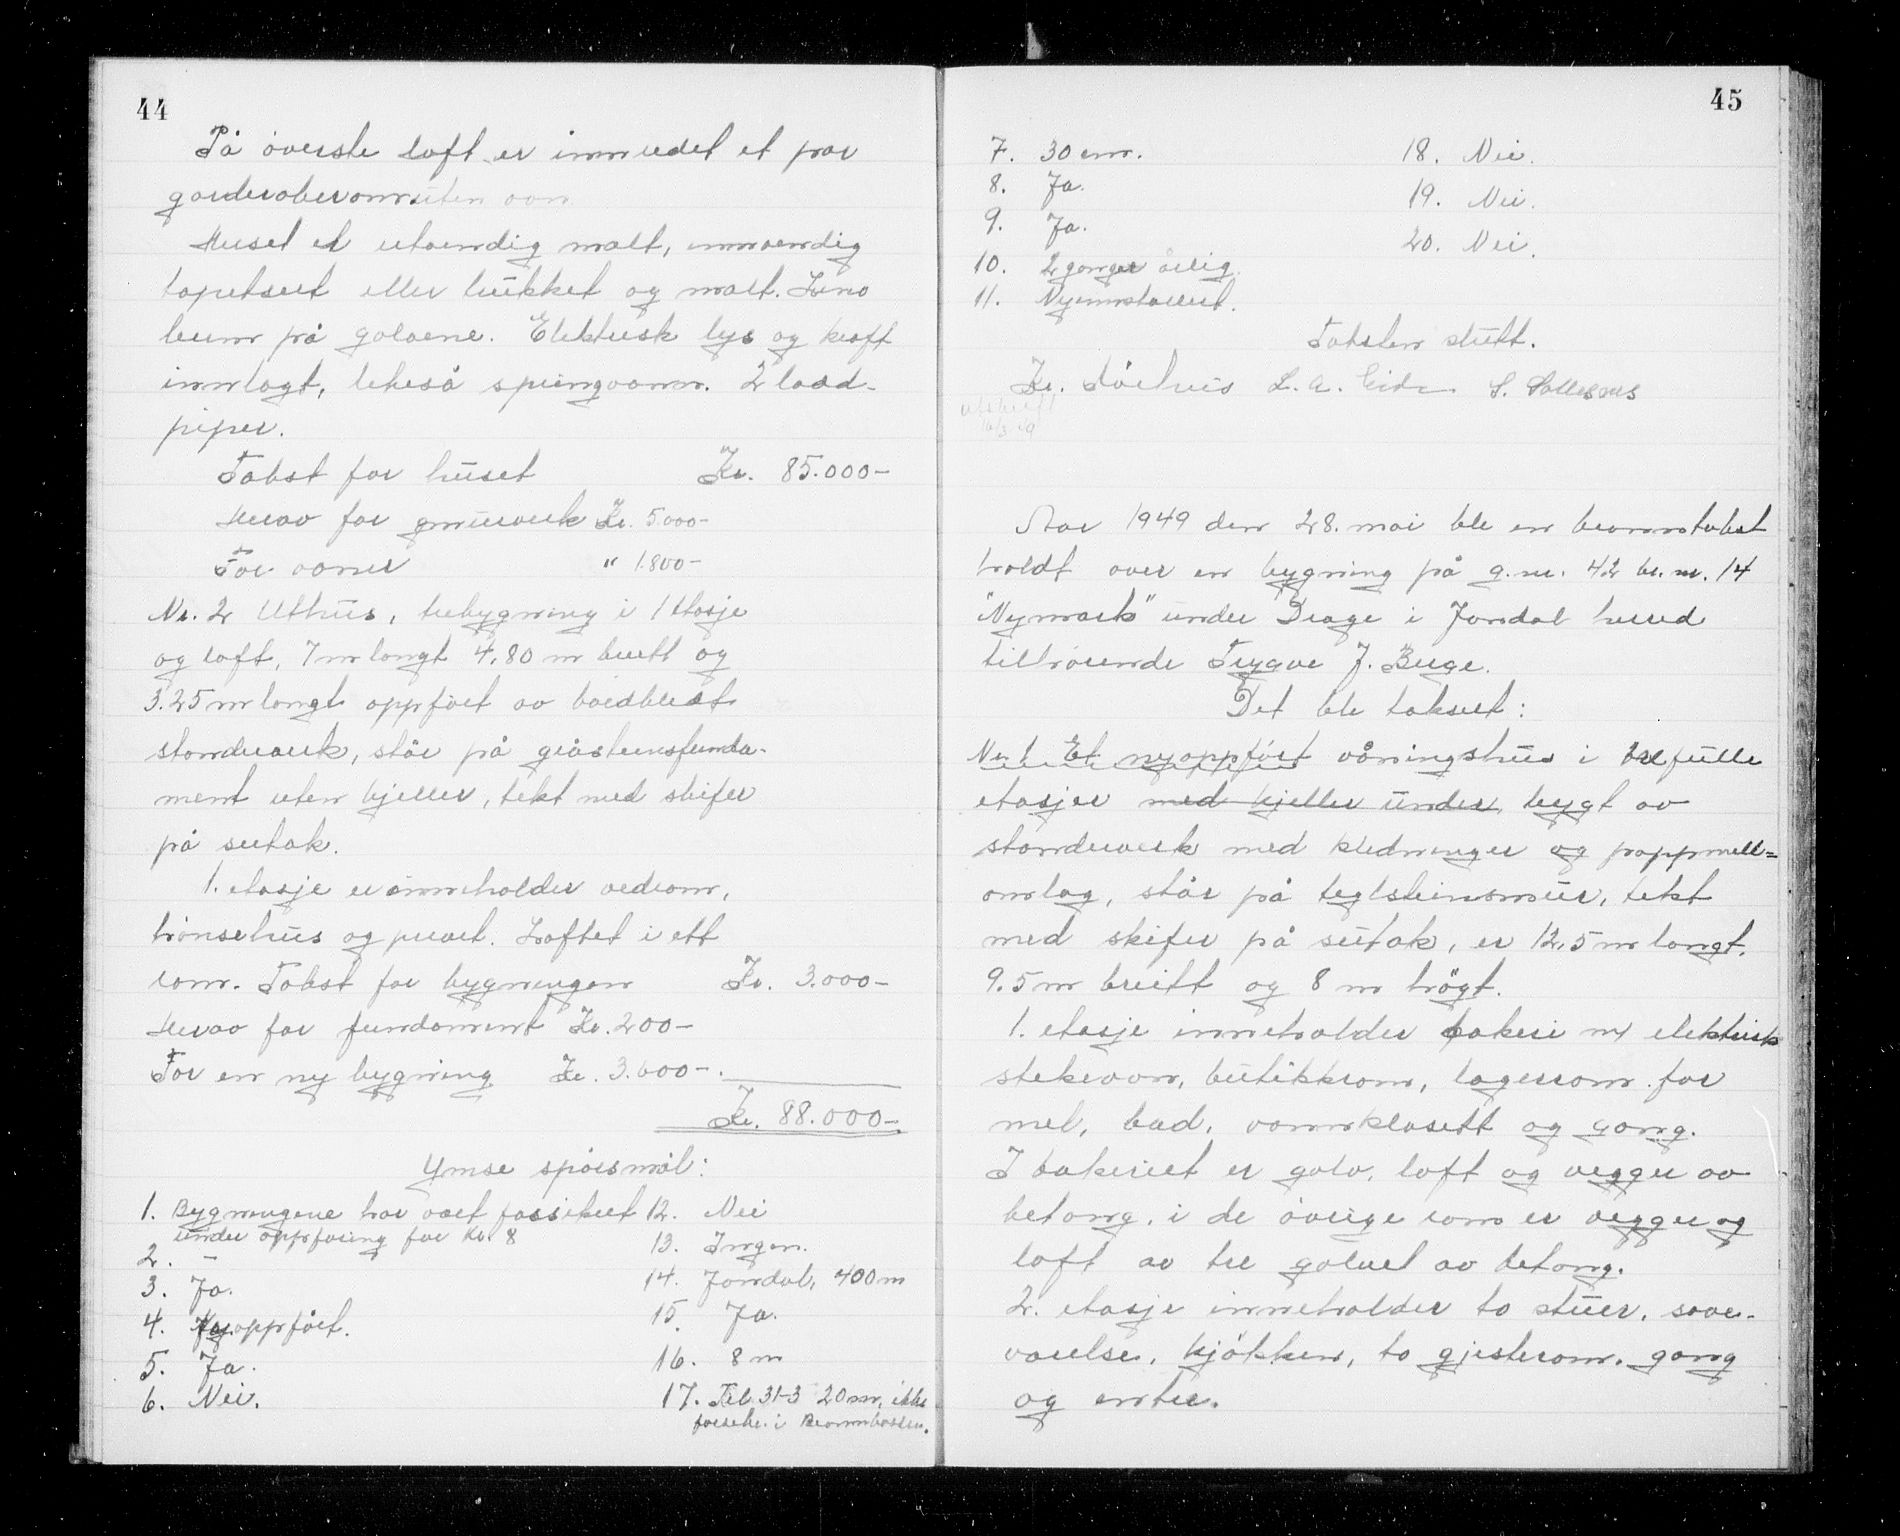 44
På øverste loft er innredet et par
garderoberom uten ovn
Huset et utvendig malt, innvendig
tapetsert eller trukket og malt. Lino
leum på golvene. Elektrisk lys og kraft
innlagt, likeså springvann. 2 ladd-
piper.
Takst for huset Kr. 85.000-
Herav for grunnverk Kr. 5000-
For ovner " 1.800-
Nr. 2 Uthus, trebygning i 1 etasje
og loft, 7 m langt 4,80 m breitt og
3.25 m langt oppført av bordkledt
standverk, står på gråsteinsfunda-
ment uten kjeller, tekt med skifer
på sutak.
1. etasje er inneholder vedrom,
hønsehus og privet. Loftet i ett
rom. Takst for bygningen Kr. 3.000-
Herav for fundament Kr. 200-
For en ny bygning Kr. 3.000-
Kr. 88.000-
Ymse spørsmål:
1. Bygningene har vært forsikret
under oppføring for kr. 8
2. -
3. Ja.
4. Nyoppført.
5. Ja.
6. Nei.
12. Nei
13. Ingen.
14. Jondal, 400 m
15. Ja.
16. 8 m
17. Til 31-3 20 m, ikke
forsikr. i Brannkassen.
45
7. 30 cm.
8. Ja.
9. Ja.
10. 2 ganger årlig.
11. Nyinnstallert.
18. Nei.
19. Nei.
20. Nei.
Taksten slutt.
Kr. Sørhus L. A. Eide S. Sollesnes
utskrift
16/3 49
Aar 1949 den 28. mai ble en branntakst
holdt over en bygning på g.nr. 42 br. nr. 14
"Nymark" under Drage i Jondal herred
tilhørende Trygve J. Berge.
Det ble taksert:
Nr. 1 Et nyoppført våningshus i to fulle
etasjer med kjeller under, bygt av
standverk med kledninger og pappmell=
omlag, står på teglsteinsmur, tekt
med skifer på sutak, er 12,5 m langt,
9.5 m breitt og 8 m høgt.
1. etasje inneholder bakeri m/ elektrisk
stekeovn, butikkrom, lagerrom for
mel, bad, vannklosett og gang.
I bakeriet er golv, loft og vegger av
betong, i de øvrige rom er vegger og
loft av tre golvet av betong.
2. etasje inneholder to stuer, sove-
værelse, kjøkken, to gjesterom, gang
og entre.